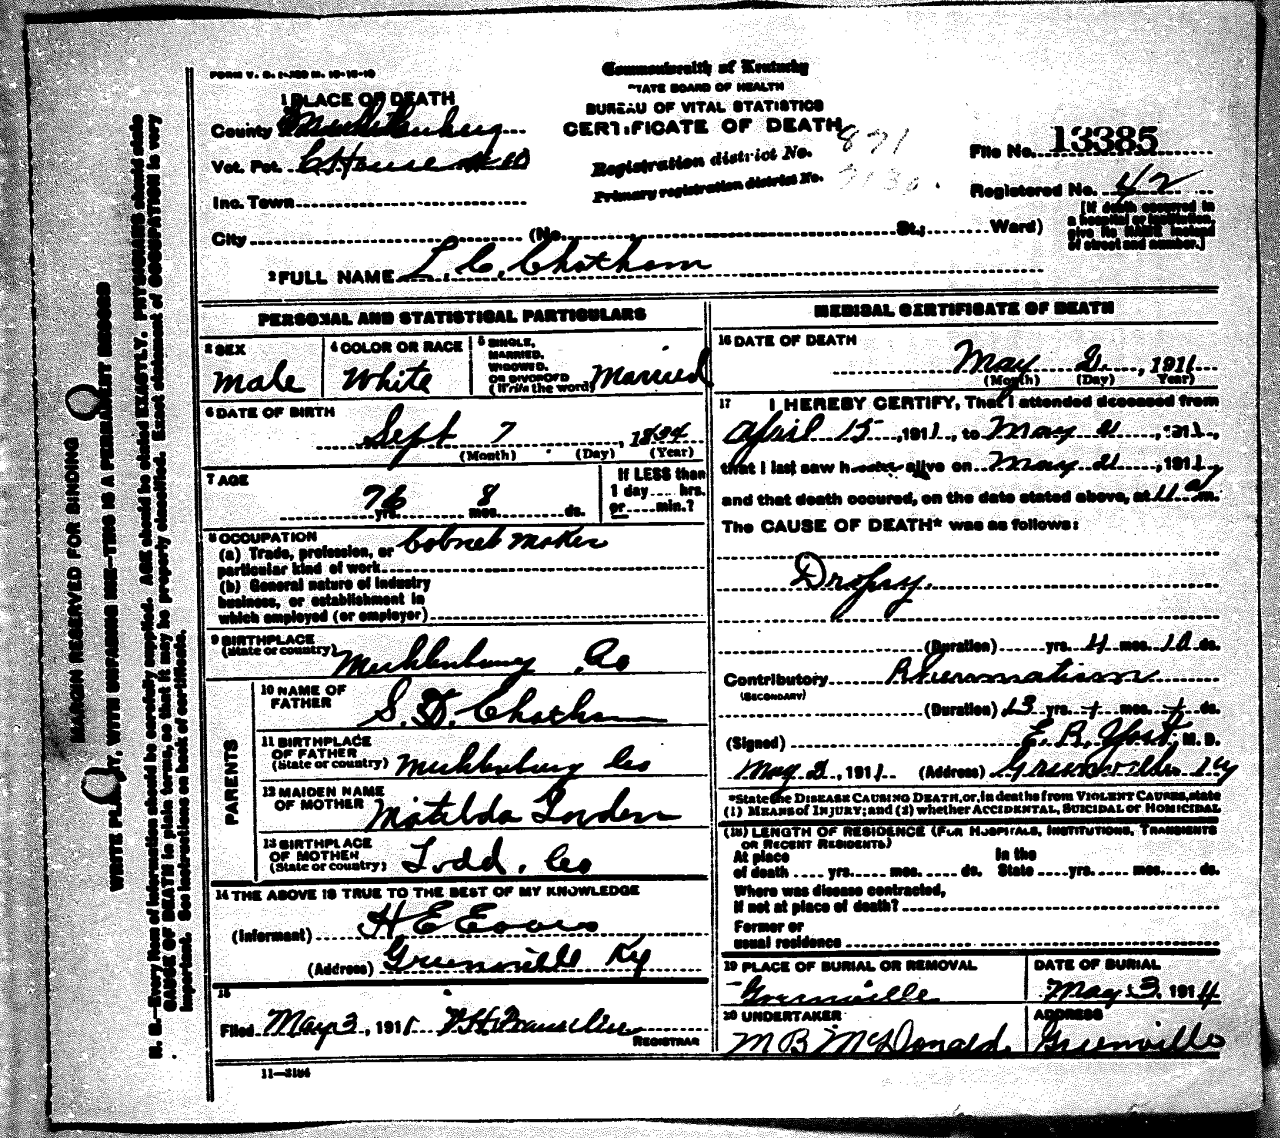 FORM V. S.
Commonwealth of Kentucky
STATE BOARD OF HEALTH
BUREAU OF VITAL STATISTICS
CERTIFICATE OF DEATH
1 PLACE OF DEATH
County Muhlenberg
Vot. Pct. C. House
Inc. Town
City (No. St.; Ward)
Registration district No. 871
Primary registration district No.
File No. 13385
Registered No. 42
[If death occurred in
a hospital or institution,
give its NAME instead
of street and number.]
2 FULL NAME L. C. Chatham
PERSONAL AND STATISTICAL PARTICULARS
3 SEX
Male
4 COLOR OR RACE
White
5 SINGLE,
MARRIED,
WIDOWED,
OR DIVORCED
(Write the word) Married
6 DATE OF BIRTH
Sept 7, 1834
(Month) (Day) (Year)
7 AGE
76 yrs. 8 mos. ds.
If LESS than
1 day .... hrs.
or .... min.?
8 OCCUPATION
(a) Trade, profession, or
particular kind of work Cobnet Maker
(b) General nature of industry
business, or establishment in
which employed (or employer)
9 BIRTHPLACE
(State or country) Muhlenburg Co
PARENTS
10 NAME OF
FATHER S. D. Chatham
11 BIRTHPLACE
OF FATHER
(State or country) Muhlenburg Co
12 MAIDEN NAME
OF MOTHER Matilda
13 BIRTHPLACE
OF MOTHER
(State or country) Todd, Co
14 THE ABOVE IS TRUE TO THE BEST OF MY KNOWLEDGE
(Informant) H E
(Address) Greenville Ky
15
Filed May 3, 1911
REGISTRAR
11—3184
MEDICAL CERTIFICATE OF DEATH
16 DATE OF DEATH
May 2, 1911
(Month) (Day) Year)
17 I HEREBY CERTIFY, That I attended deceased from
April 15, 1911, to May 2, 1911,
that I last saw h alive on May 2, 1911,
and that death occured, on the date stated above, at 11 a m.
The CAUSE OF DEATH* was as follows:
Dropsy.
(Duration) yrs. 4 mos. 10 ds.
Contributory Rheumatism
(SECONDARY)
(Duration) 13 yrs. mos. ds.
(Signed) E. R. Yost, M. D.
May 2, 1911 (Address) Greenville Ky
*State the DISEASE CAUSING DEATH, or, in deaths from VIOLENT CAUSES, state
(1) MEANS of INJURY; and (2) whether ACCIDENTAL, SUICIDAL or HOMICIDAL
(18) LENGTH OF RESIDENCE (FOR HOSPITALS, INSTITUTIONS, TRANSIENTS
OR RECENT RESIDENTS)
At place
of death .... yrs. .... mos. .... ds.
In the
State .... yrs. .... mos. .... ds.
Where was disease contracted,
If not at place of death?
Former or
usual residence
19 PLACE OF BURIAL OR REMOVAL
Greenville
DATE OF BURIAL
May 3, 1911
20 UNDERTAKER
M B McDonald.
ADDRESS
Greenville
MARGIN RESERVED FOR BINDING
WRITE PLAINLY, WITH UNFADING INK—THIS IS A PERMANENT RECORD
N. B.—Every item of information should be carefully supplied. AGE should be stated EXACTLY. PHYSICIANS should state
CAUSE OF DEATH in plain terms, so that it may be properly classified. Exact statement of OCCUPATION is very
important. See instructions on back of certificate.